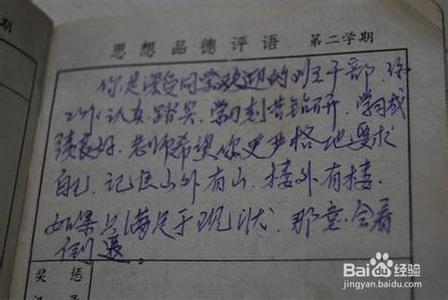 思想品德评语 第二学期
你是深受同学欢迎的班干部,你
工作认真、踏实,学习刻苦钻研,学习成
绩良好。老师希望你更严格地要求
自己,记住山外有山,楼外有楼。
如果只满足于现状,那意会着
倒退。
奖惩
Baidu经验
jingyan.baidu.com